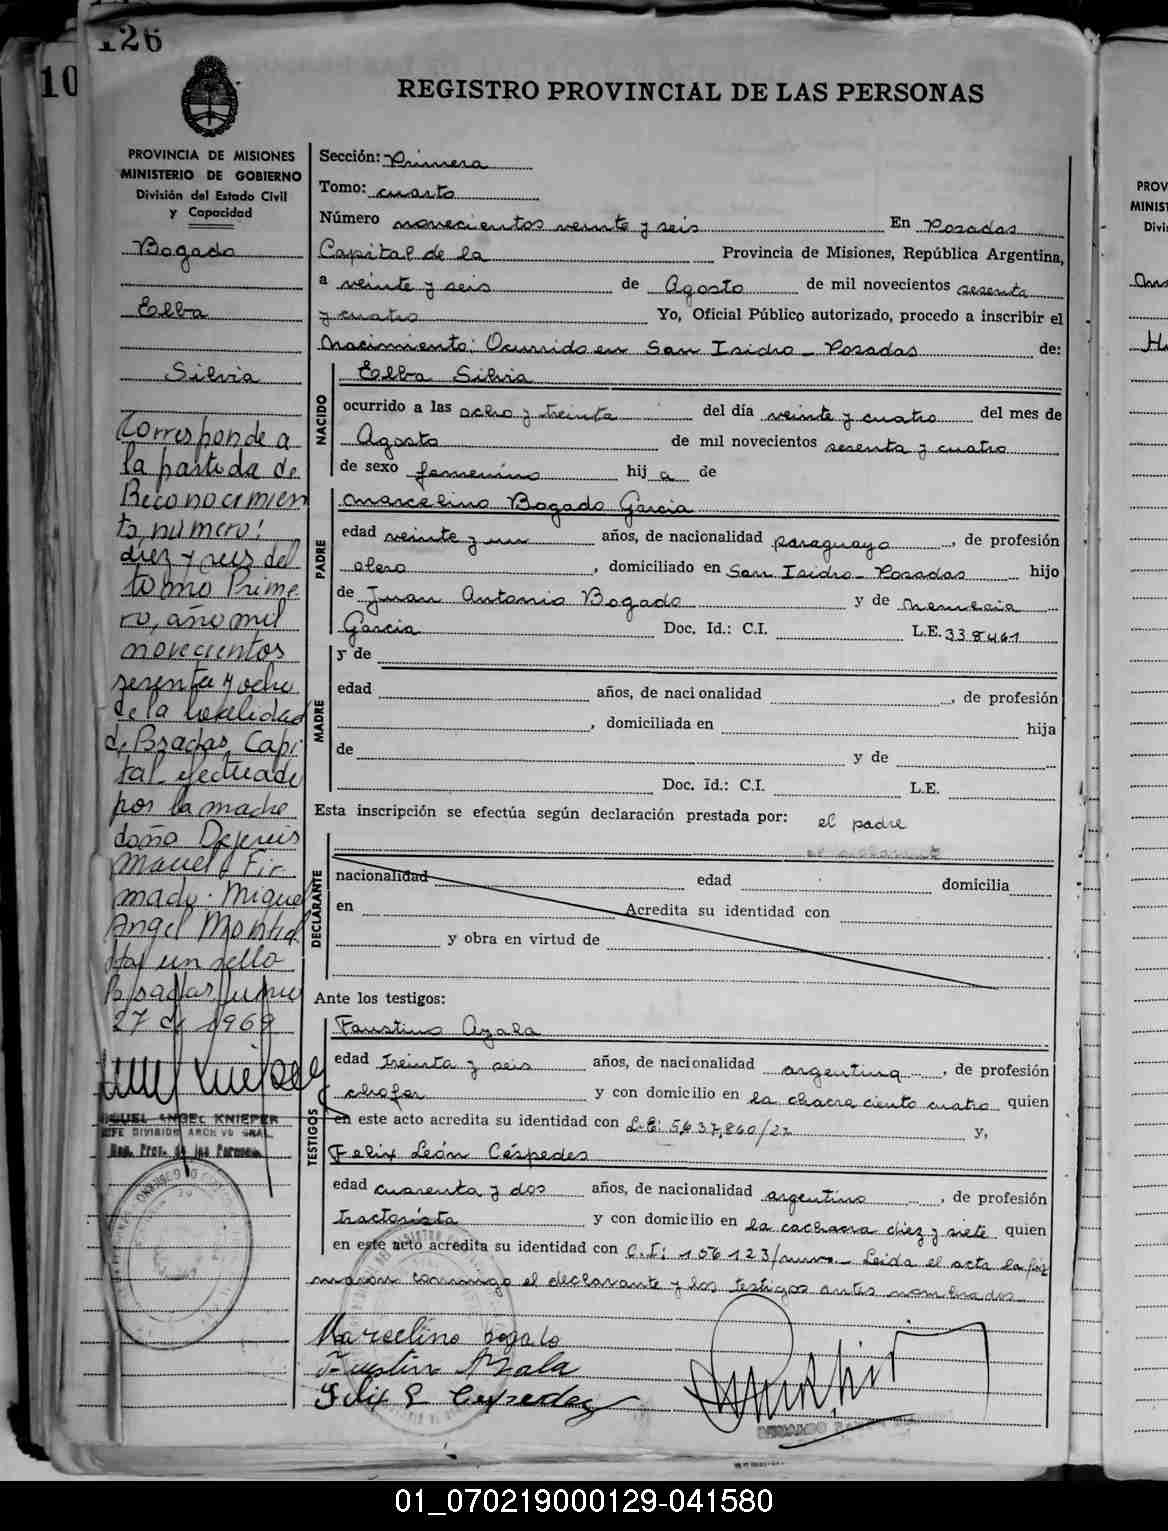 126
10
REGISTRO PROVINCIAL DE LAS PERSONAS
PROVINCIA DE MISIONES
MINISTERIO DE GOBIERNO
División del Estado Civil
y Capacidad
Bogado
Elba
Silvia
Corresponde a
la partida de
Reconocimien
to número:
diez y seis del
tomo Prime
ro, año mil
novecientos
sesenta y ocho
de la localidad
de Posadas, Capi
tal efectuado
por la madre
doña
Fir
mado: Miguel
Angel Montiel
Hay un sello
Posadas, junio
27 de 1969
MIGUEL ANGEL KNIEPER
JEFE DIVISION ARCHIVO GRAL.
Reg. Prov. de las Personas
Sección: Primera
Tomo: cuarto
Número novecientos veinte y seis En Posadas
Capital de la Provincia de Misiones, República Argentina,
a veinte y seis de Agosto de mil novecientos sesenta
y cuatro Yo, Oficial Público autorizado, procedo a inscribir el
Nacimiento: Ocurrido en San Isidro - Posadas de:
NACIDO
Elba Silvia
ocurrido a las ocho y treinta del día veinte y cuatro del mes de
Agosto de mil novecientos sesenta y cuatro
de sexo femenino hij a de
PADRE
Marcelino Bogado Garcia
edad veinte y un años, de nacionalidad paraguayo, de profesión
olero, domiciliado en San Isidro - Posadas hijo
de Juan Antonio Bogado y de Nemecia
Garcia Doc. Id.: C.I. L.E. 338461
MADRE
y de
edad años, de nacionalidad , de profesión
, domiciliada en hija
de y de
Doc. Id.: C.I. L.E.
Esta inscripción se efectúa según declaración prestada por: el padre
DECLARANTE
nacionalidad edad domicilia
en Acredita su identidad con
y obra en virtud de
Ante los testigos:
TESTIGOS
Faustino Ayala
edad treinta y seis años, de nacionalidad argentina, de profesión
chofer y con domicilio en la chacra ciento cuatro quien
en este acto acredita su identidad con L.E: 5,637,860/22 y,
Felix León Céspedes
edad cuarenta y dos años, de nacionalidad argentino, de profesión
tractorista y con domicilio en la cachara diez y siete quien
en este acto acredita su identidad con C.I: 106123/ Leida el acta la fir
maron conmigo el declarante y los testigos antes nombrados
Marcelino bogado
Faustin Ayala
Felix L Cespedes
01_070219000129-041580
PROV
MINIST
Divi